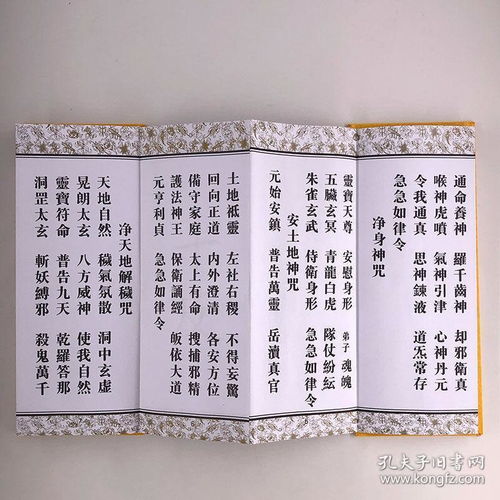 通命養神　羅千齒神　却邪衛真
喉神虎噴　氣神引津　心神丹元
令我通真　思神鍊液　道炁常存
急急如律令
淨身神咒
靈寶天尊　安慰身形　弟子　魂魄
五臟玄冥　青龍白虎　隊仗紛紜
朱雀玄武　侍衛身形　急急如律令
安土地神咒
元始安鎮　普告萬靈　岳瀆真官
土地祗靈　左社右稷　不得妄驚
回向正道　內外澄清　各安方位
備守家庭　太上有命　搜捕邪精
護法神王　保衛誦經　皈依大道
元亨利貞　急急如律令
淨天地解穢咒
天地自然　穢氣氛散　洞中玄虛
晃朗太玄　八方威神　使我自然
靈寶符命　普告九天　乾羅答那
洞罡太玄　斬妖縛邪　殺鬼萬千
孔夫子旧書网
www.kongfz.com